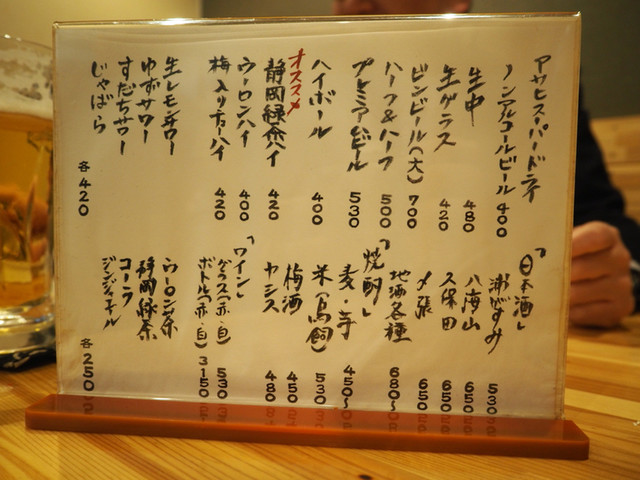 アサヒスーパードライ
ノンアルコールビール 400
生中 480
生グラス 420
ビンビール(大) 700
ハーフ&ハーフ 500
プレミアムビール 530
ハイボール 400
オススメ
静岡緑茶ハイ 420
ウーロンハイ 400
梅入り酎ハイ 420
生レモンサワー
ゆずサワー
すだちサワー
じゃばら
各420
「日本酒」
530
八海山 650
久保田 650
〆張 650
地酒各種 680〜
「焼酎」
麦・芋 450〜
米(鳥飼) 530
梅酒 450
カシス 480
「ワイン」
グラス(赤・白) 530
ボトル(赤・白) 3150
ウーロン茶
静岡緑茶
コーラ
ジンジャエール
各250